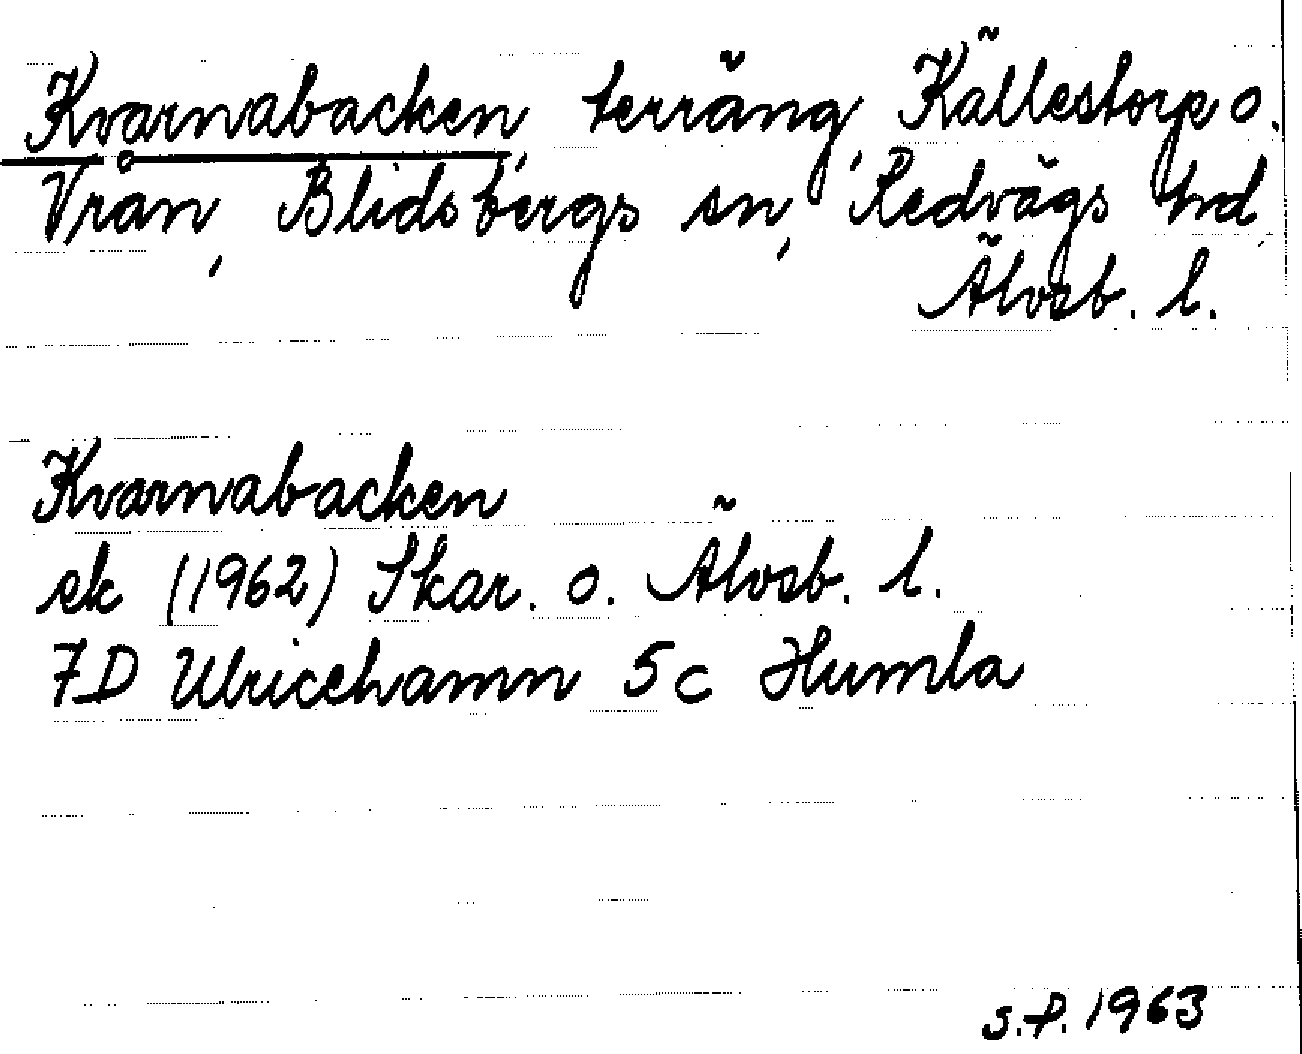 Kvarnabacken, terräng, Källestorp o.
Vrån, Blidsbergs sn, Redvägs hd,
Älvsb. l.
Kvarnabacken
ek (1962) Skar. o. Älvsb. l.
7D Ulricehamn 5c Humla
S.P. 1963